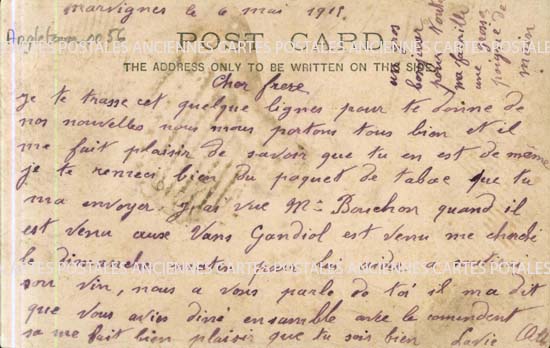 Marvignes le 6 mai 1915
Appletown no 56
POST CARD
THE ADDRESS ONLY TO BE WRITTEN ON THIS SIDE
CARTES POSTALES ANCIENNES CARTES POSTALES ANCIENNES CARTES POSTALES
Cher frere
je te trasse cet quelque lignes pour te donne de
nos nouvelles nous nous portons tous bien et il
me fait plaisir de savoir que tu en est de même
je te remerci bien du paquet de tabac que tu
ma envoyer j'ai vue Mr Boschon quand il
est venu aux Vans Gandiol est venu me cherché
le dimanche pour lui aider a
son vin, nous a vous parlé de toi il ma dit
que vous aviez diné ensamble avec le comendent
sa me fait bien plaisir que tu sois bien
bonjour
pour toute
ma famille
une grosse
poignée de
main